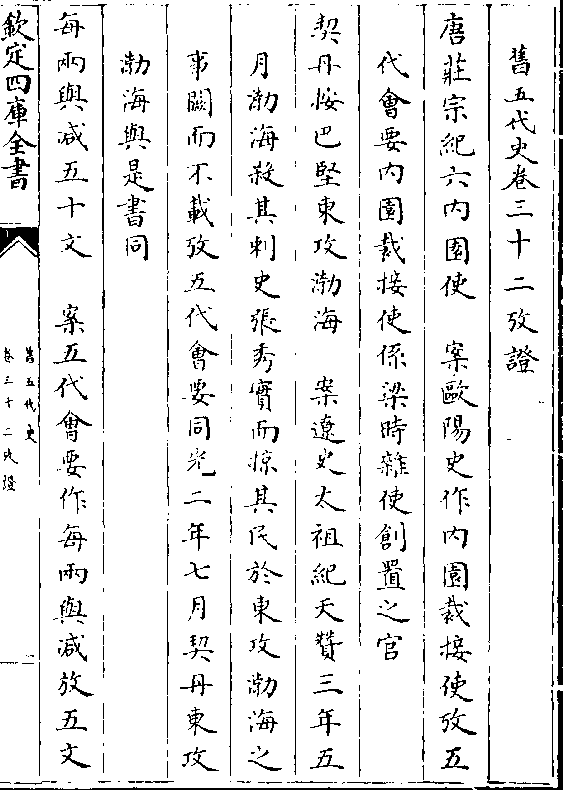 舊五代史卷三十二攷證
唐莊宗紀六內園使　案歐陽史作內園栽接使攷五
代會要內園栽接使係梁時雜使創置之官
契丹按巴堅東攻渤海　案遼史太祖紀天贊三年五
月渤海殺其刺史張秀實而掠其民於東攻渤海之
事闕而不載攷五代會要同光二年七月契丹東攻
渤海與是書同
每兩與減五十文　案五代會要作每兩與減放五文
欽定四庫全書
舊五代史
卷三十二攷證